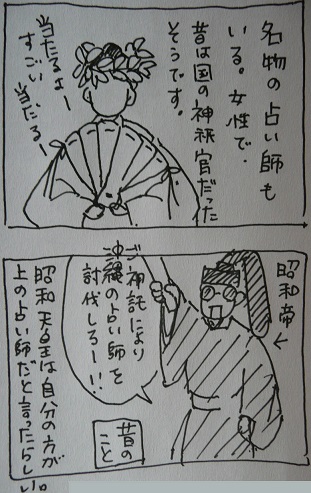 名物の占い師も
いる。女性で、
昔は国の神祇官だった
そうです。
当たるよー
すごい
当たる
昭和帝
ご神託により
沖縄の占い師を
討伐しろー!!
昔の
こと
昭和天皇は自分の方が
上の占い師だと言ったらしい。